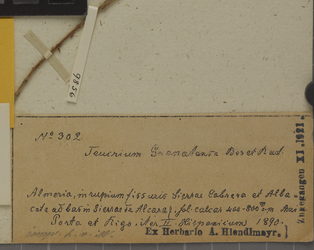 9856
No 302
Teucrium Granatense Bss et Reut.
Almeria, in rupium fissuris Sierras Cabrera et Alha-
Sierras de Alcaraz, sol. calcar.
Porta et Rigo, Iter II Hispanicum 1890.
Ex Herbario A. Hiendlmayr.
Zugegangen XI.1921.